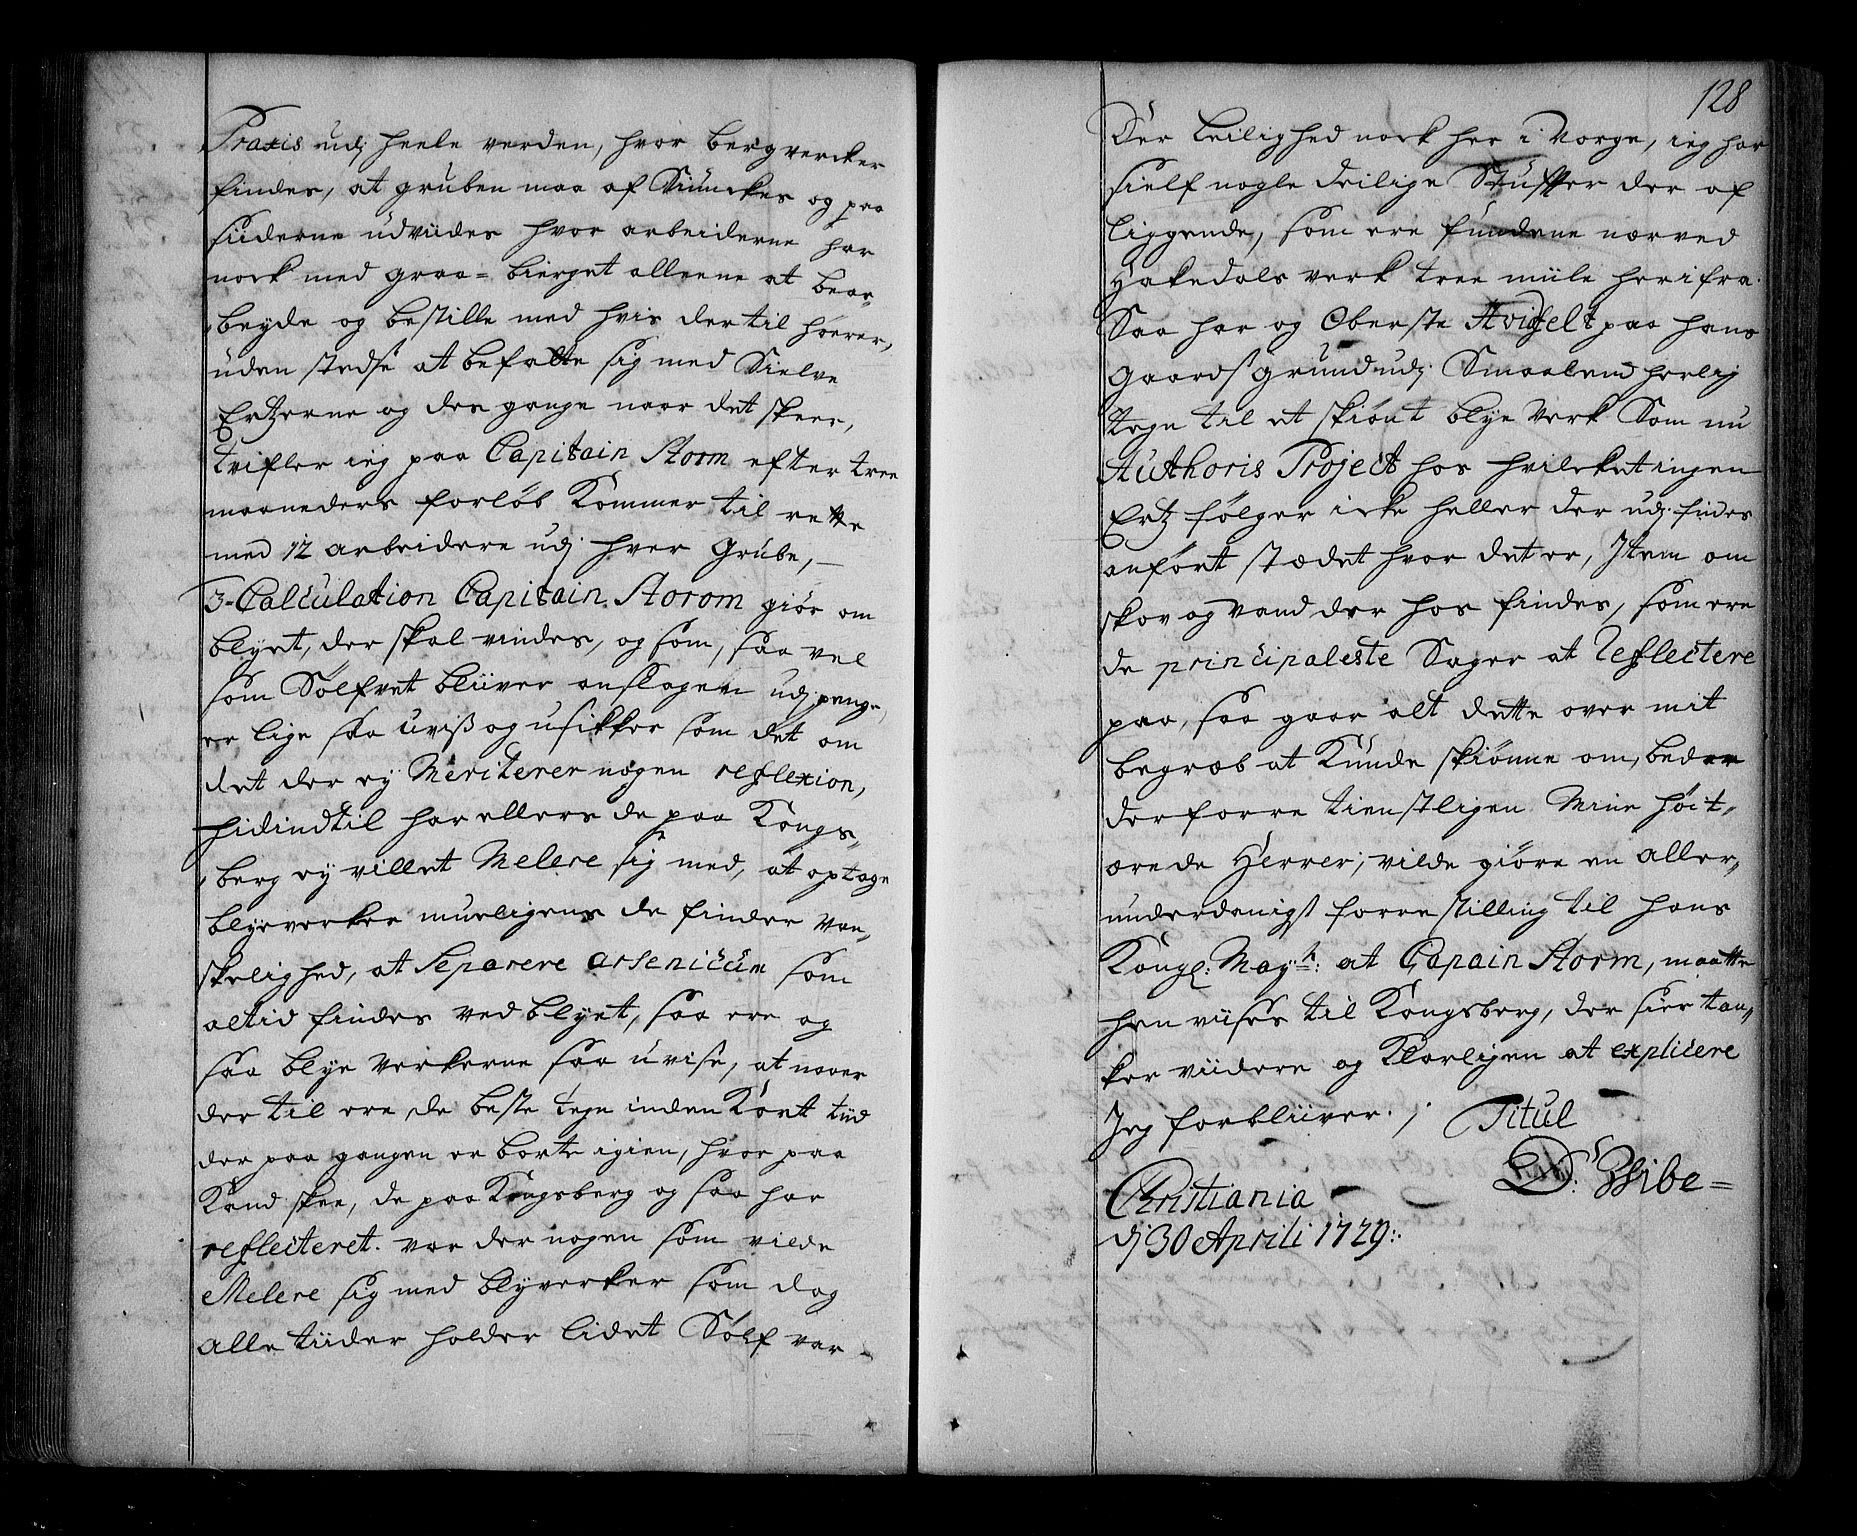 Praxis udj heele verden, hvor bergvercker
findes, at gruben maa af Siunckes og paa
siiderne udviides hvor arbeiderne har
nock med graa= bierget alleene at bear„
„beyde og bestille med hvis dertil hører,
uden stedse at befatte sig med Sielve
Ertzerne og des gange naar det skeer,
tvifler ieg paa Capitain Storm efter tree
maaneders forløb Kommer til rette
med 12 arbeidere udj hver Grube, —
3- Calculation Capitain Storom giør om
blyet, der skal vindes, og som, saa vel
som Sølfvet bliiver anslagen udj penge,
er lige saa uviß og usikker som det om
det der ej Meriterer nogen reflexion,
hidindtil har ellers de paa Kongs„
„berg ej villet Melere sig med, at optage
blyeverker mueligens de finder van„
skelighed, at Separere arsenicum som
altid findes ved blyet, saa ere og
saa blye verkerne saa uvise, at naaer
der til ere de beste tegn inden Kort tiid
der paa gangen er borte igien, hvor paa
Kand skee, de paa Kongsberg og saa har
reflecteret. var der nogen som vilde
Melere sig med blyverker som dog
alle tiider holder lidet Sølf var
128
der leilighed nock her i Norge, ieg har
sielf nogle deilige Stuffer der af
liggende, som ere fundene nærved
Hakedals verk tree miile herifra.
Saa har og Oberste Hvidfelt paa hans
Gaards grund udj Smaalend herlig
tegn til et skiønt blye verk Som nu
Authoris Project hos hvilcket ingen
Ertz følger icke heller der udj findes
anført stædet hvor det er, Item om
skov og vand der hos findes, som ere
de principaleste Sager at Reflectere
paa, saa gaar alt dette over mit
begreb at Kunde skiønne om, beder
derforre tienstligen Mine høit„
ærede Herrer; vilde giøre en aller„
underdanigst forrestilling til hans
Kongl: Mayt: at Capain Storm, maatte
henviises til Kongsberg, der sine tan„
ker viidere og Klarligen at explicere
Jeg forbliiver. / Titul
D: Wibe=
Christiania
dj 30 Aprili 1729: